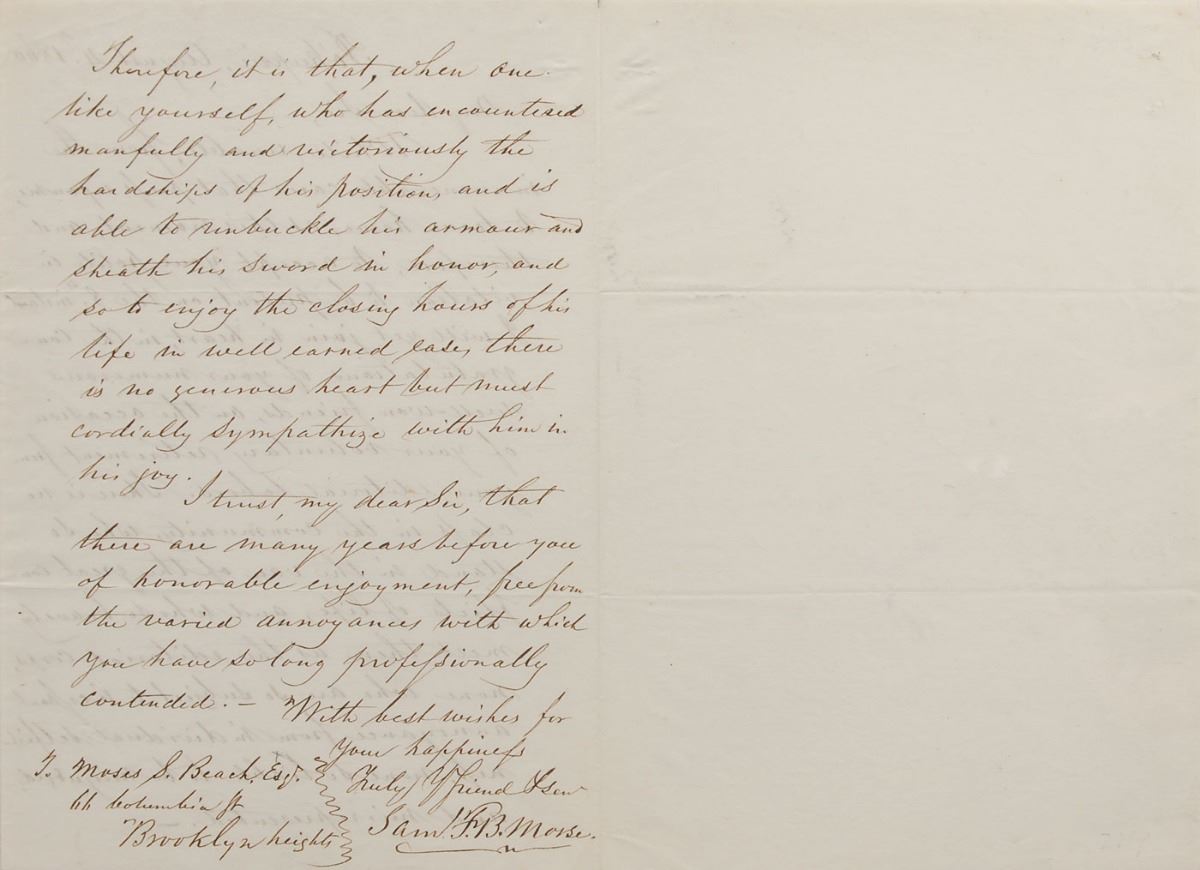 Therefore, it is that, when one
like yourself, who has encountered
manfully and victoriously the
hardships of his position, and is
able to unbuckle his armour and
sheath his sword in honor, and
so to enjoy the closing hours of his
life in well earned ease, there
is no generous heart but must
cordially sympathize with him in
his joy.
I trust, my dear Sir, that
there are many years before you
of honorable enjoyment, free from
the varied annoyances with which
you have so long professionally
contended. — With best wishes for
your happiness
Truly Yr friend & serv
Saml. F. B. Morse.
To Moses S. Beach, Esq.
66 Columbia St
Brooklyn heights